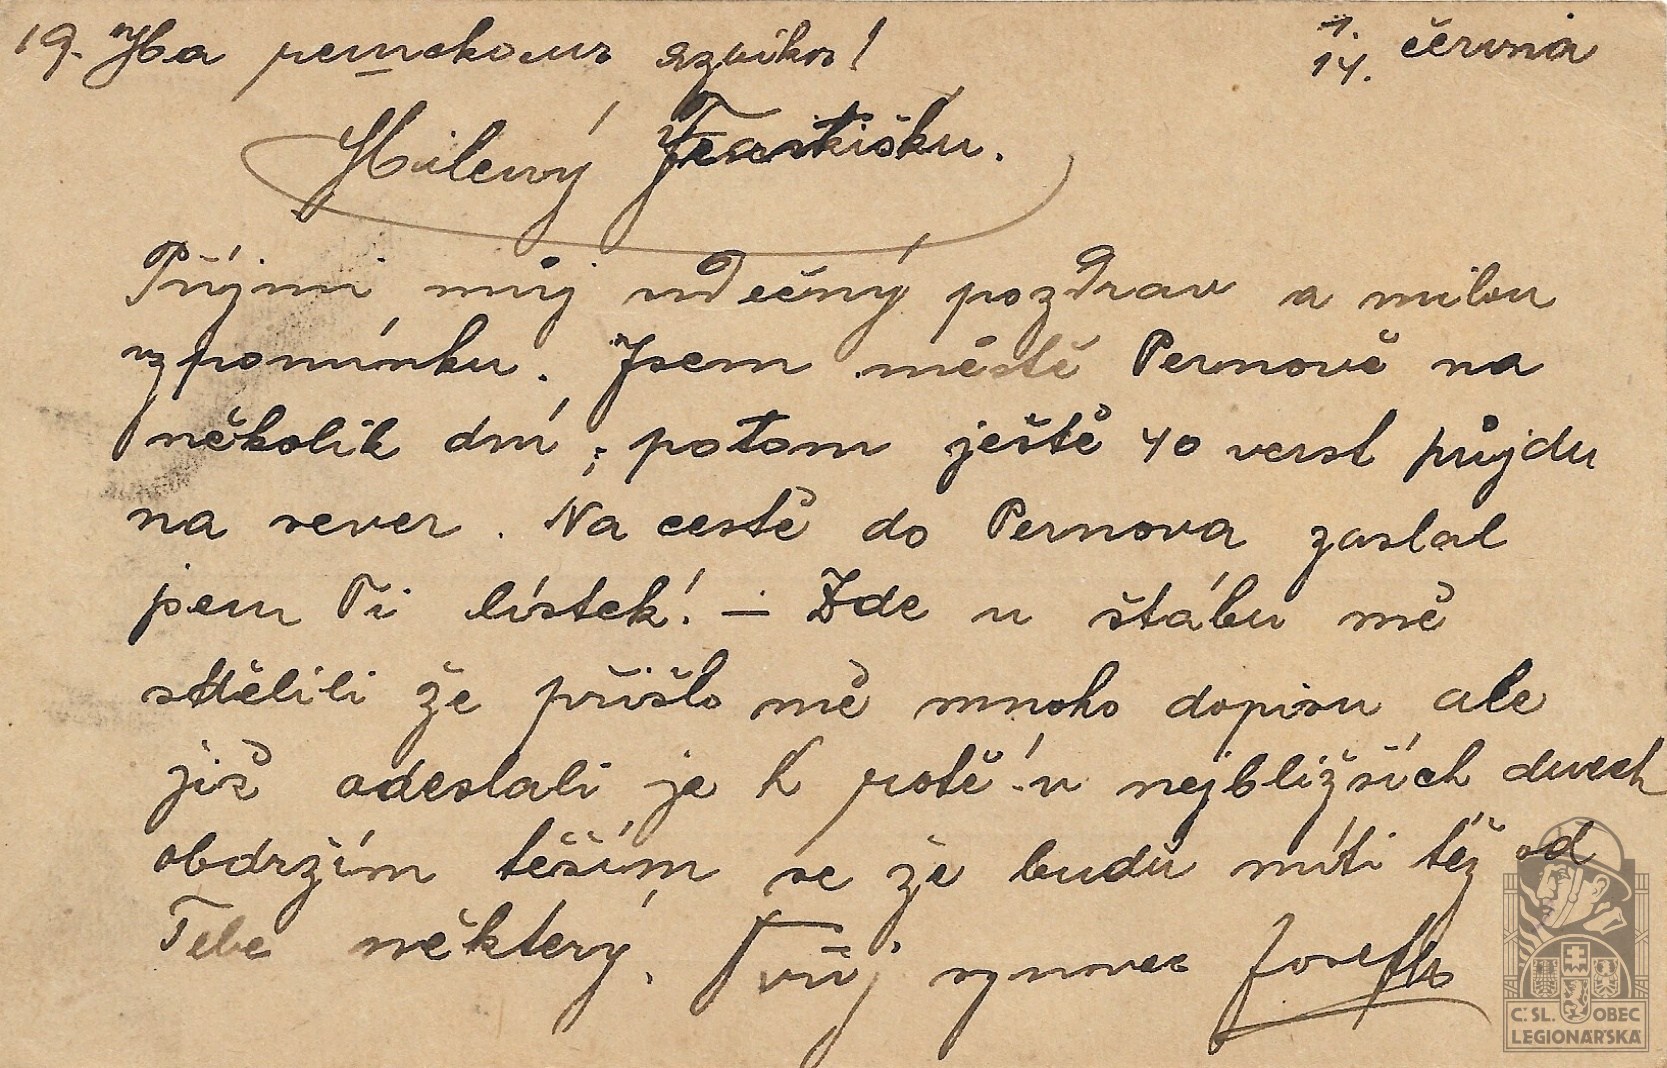 19. На чешском языке! 1./14. června
Milený Františku.
Přijmi můj vděčný pozdrav a milou
vzpomínku. Jsem městě Pernově na
několik dní; potom ještě 40 verst půjdu
na sever. Na cestě do Pernova zaslal
jsem Ti lístek! – Zde u štábu mě
sdělili že přišlo mě mnoho dopisu ale
již odeslali je k rotě! v nejbližších dnech
obdržím těším se že budu míti též od
Tebe některý. Tvůj synovec Josef
Č. SL. OBEC
LEGIONÁŘSKÁ